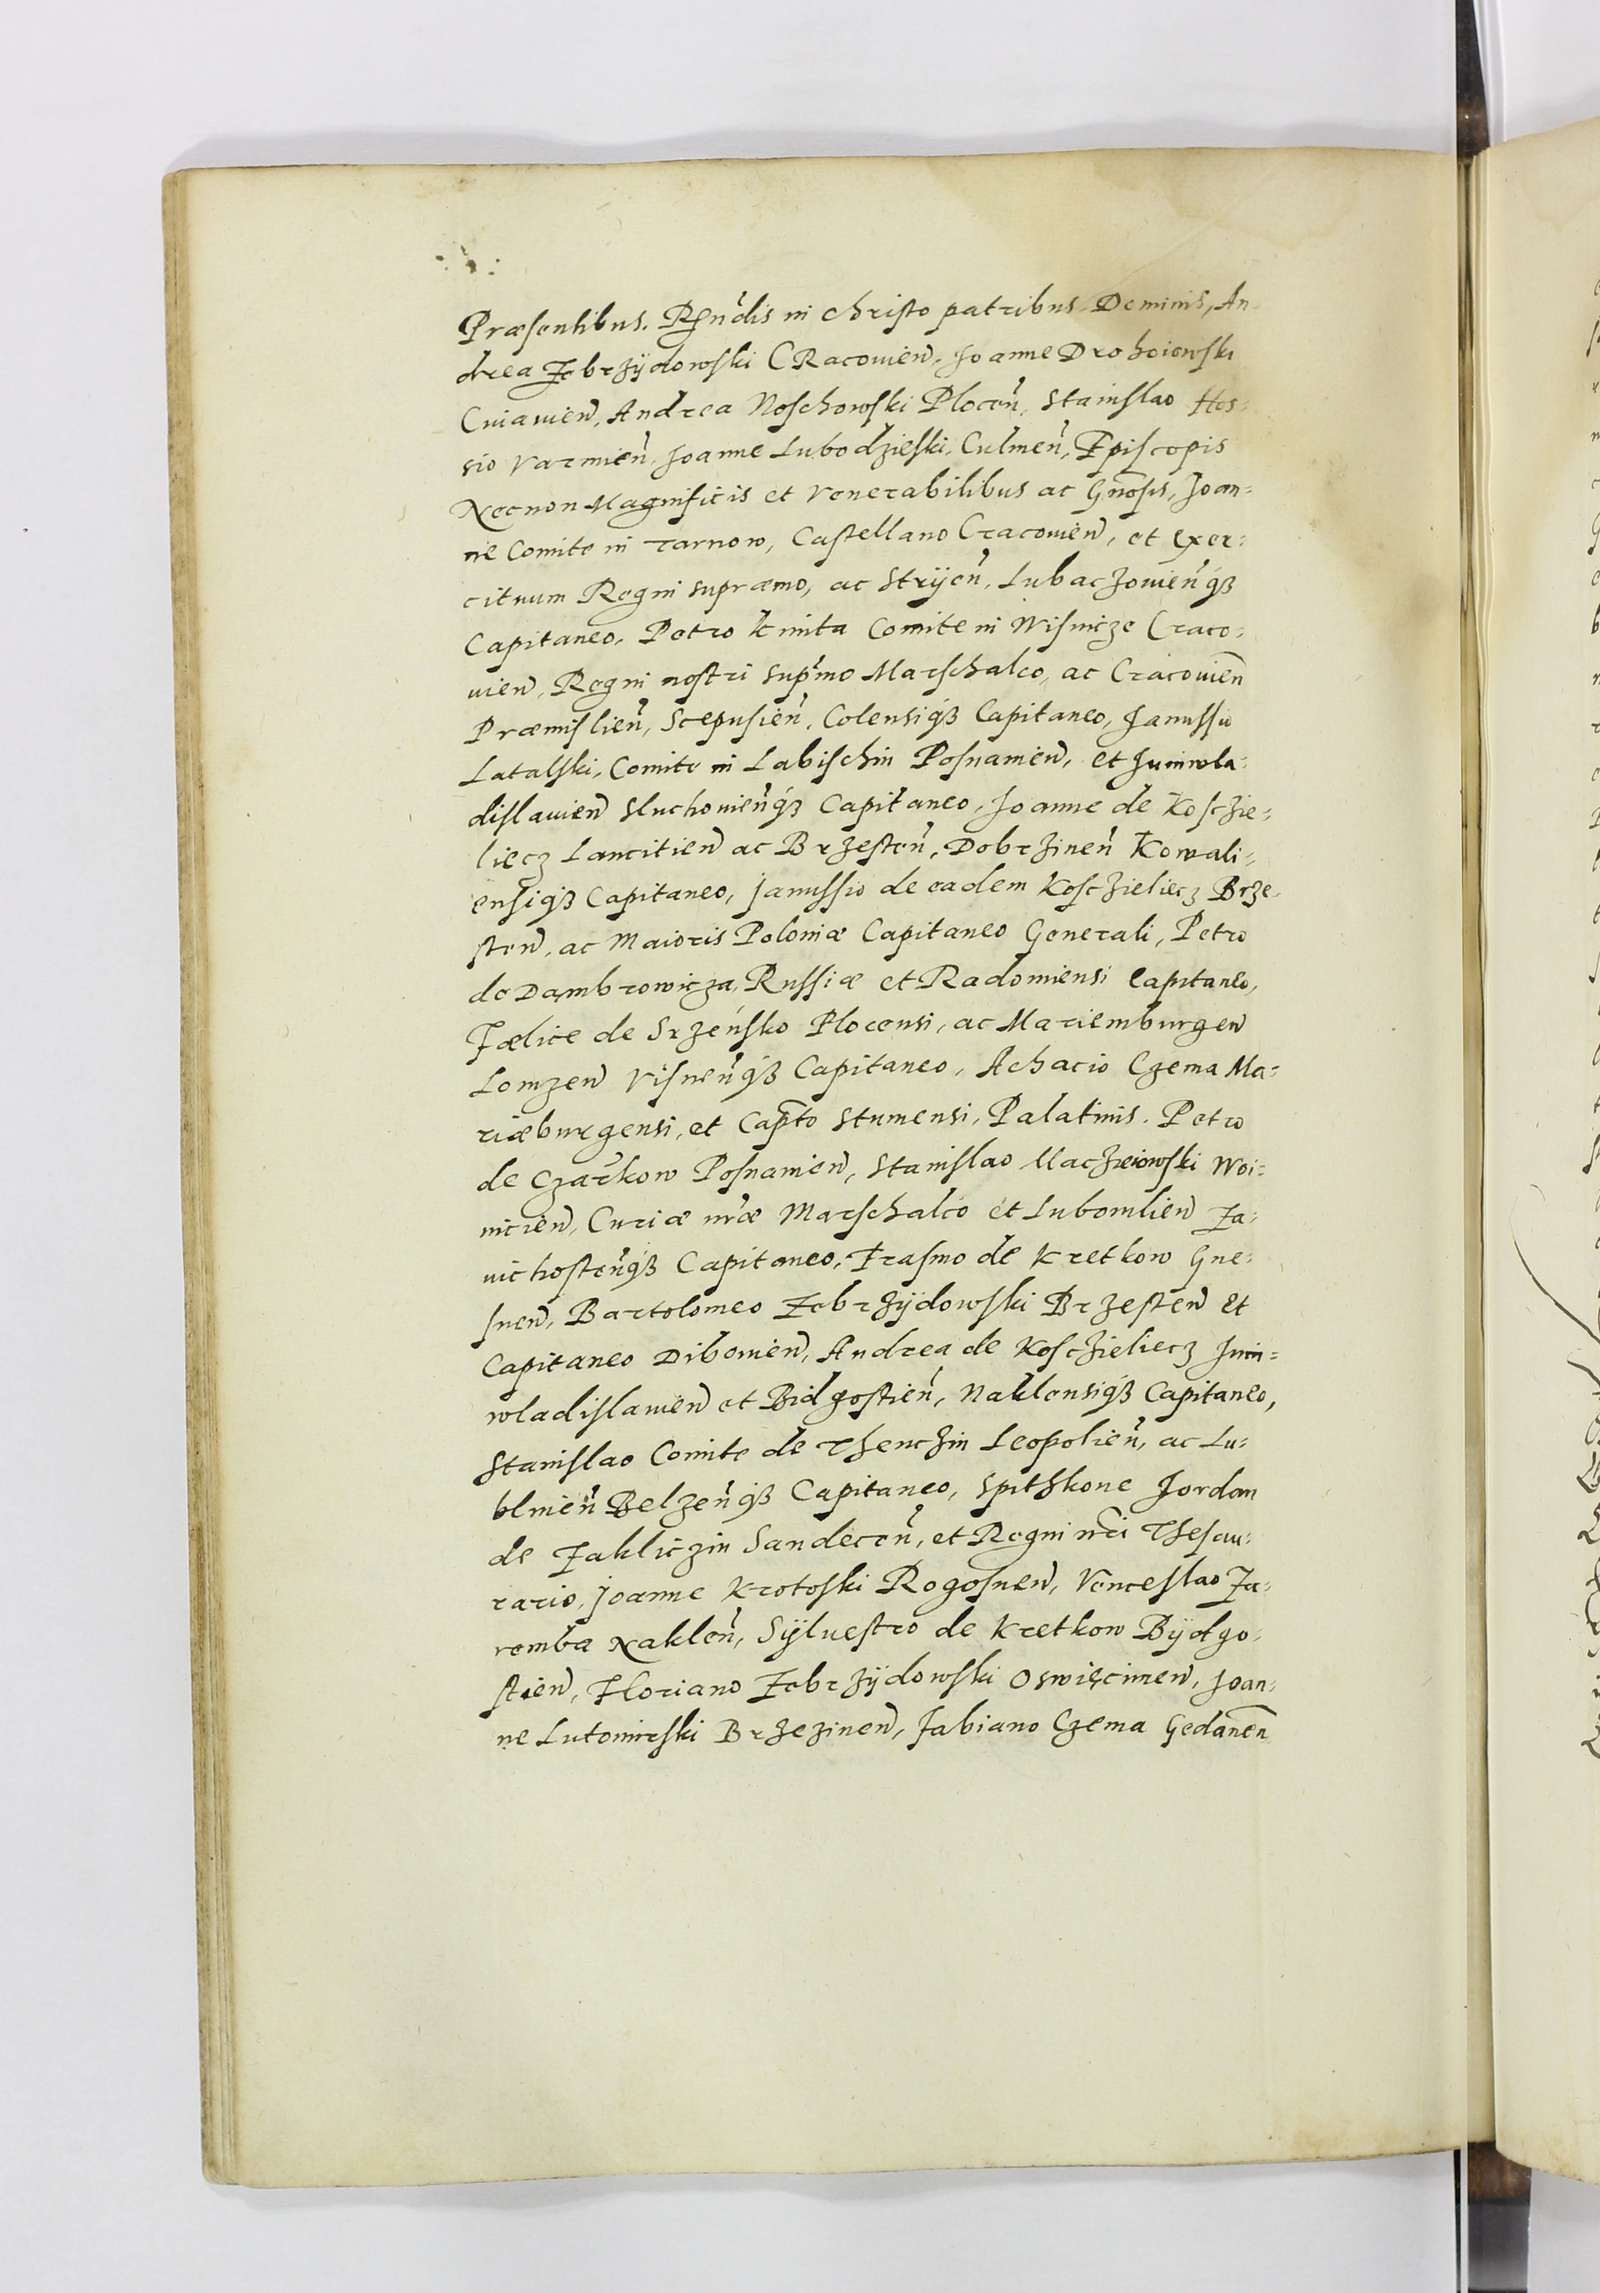 Præsentibus. Rẽndis in Christo patribus Dominis, An-
drea Zebrzÿdowski CRacouien̄, Joanne Drohoiowski
Cuiauien̄, Andrea Noschowski Plocen̄, Stanislao Hos-
sio Varmien̄, Joanne Lubodzieski, Culmen̄, Episcopis
Necnon Magnificis et Venerabilibus ac Gn̄osis, Joan-
ne Comite in Tarnow, Castellano Cracouien̄, et Exer-
cituum Regni supræmo, ac Strÿen̄, Lubaczouien̄qȝ
Capitaneo, Petro Kmita Comite in Wisnicze Craco-
uien̄, Regni nostri suprmo Marschalco, ac Cracouien̄
Præmislien̄, Scepusien̄, Colensiqȝ Capitaneo, Janussio
Latalski, Comite in Labischin Posnanien̄, et Juniwla-
dislauien̄ Sluchouien̄qȝ Capitaneo, Joanne de Kosczie-
liecz Lancitien̄ ac Brzesten̄, Dobrzinen̄ Kowali-
ensiqȝ Capitaneo, Janussio de eadem Kosczieliecz Brze-
sten̄, ac Maioris Poloniæ Capitaneo Generali, Petro
de Dambrowicza, Russiæ et Radomiensi Capitaneo,
Fœlice de Srzeńsko Plocensi, ac Mariemburgen̄
Lomzen̄ Visnen̄qȝ Capitaneo, Achacio Czema Ma-
riæburgensi, et Cap̄to Stumensi, Palatinis. Petro
de Czarnkow Posnanien̄, Stanislao Macziejowski Woi-
nicien̄, Curiæ nr̄æ Marschalco et Lubomlien̄ Za-
uichosten̄qȝ Capitaneo, Erasmo de Kretkow Gne-
snen̄, Bartolomeo Zebrzÿdowski Brzesten̄ et
Capitaneo Dibouien̄, Andrea de Kosczieliecz Juni-
wladislauien̄ et Bidgostien̄, Naklensiqȝ Capitaneo,
Stanislao Comite de Thenczin Leopolien̄, ac Lu-
blinen̄ Belzen̄qȝ Capitaneo, Spithkone Jordan
de Zakliczin Sandecen̄, et Regni nr̄i Thesau-
rario, Joanne Krotoski Rogosnen̄, Venceslao Za-
remba Naklen̄, Sÿluestro de Kretkow Bÿdgo-
stien̄, Floriano Zebrzÿdowski Oswięcimen̄, Joan-
ne Lutomirski Brzezinen̄, Fabiano Czema Gedanen̄